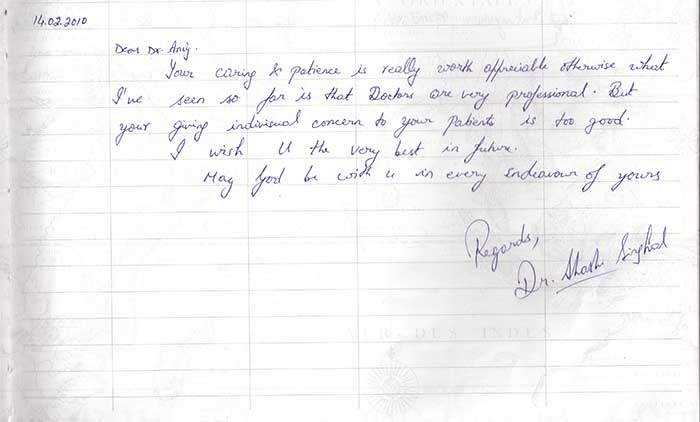 14.02.2010
Dear Dr. Anij.
Your caring & patience is really worth appreciable otherwise what
I've seen so far is that Doctors are very professional. But
your giving indivisual concern to your patients is too good.
I wish U the very best in future.
May God be with u in every Endeavour of yours
Regards,
Dr. Shashi Singhal
MER DUS INDUS